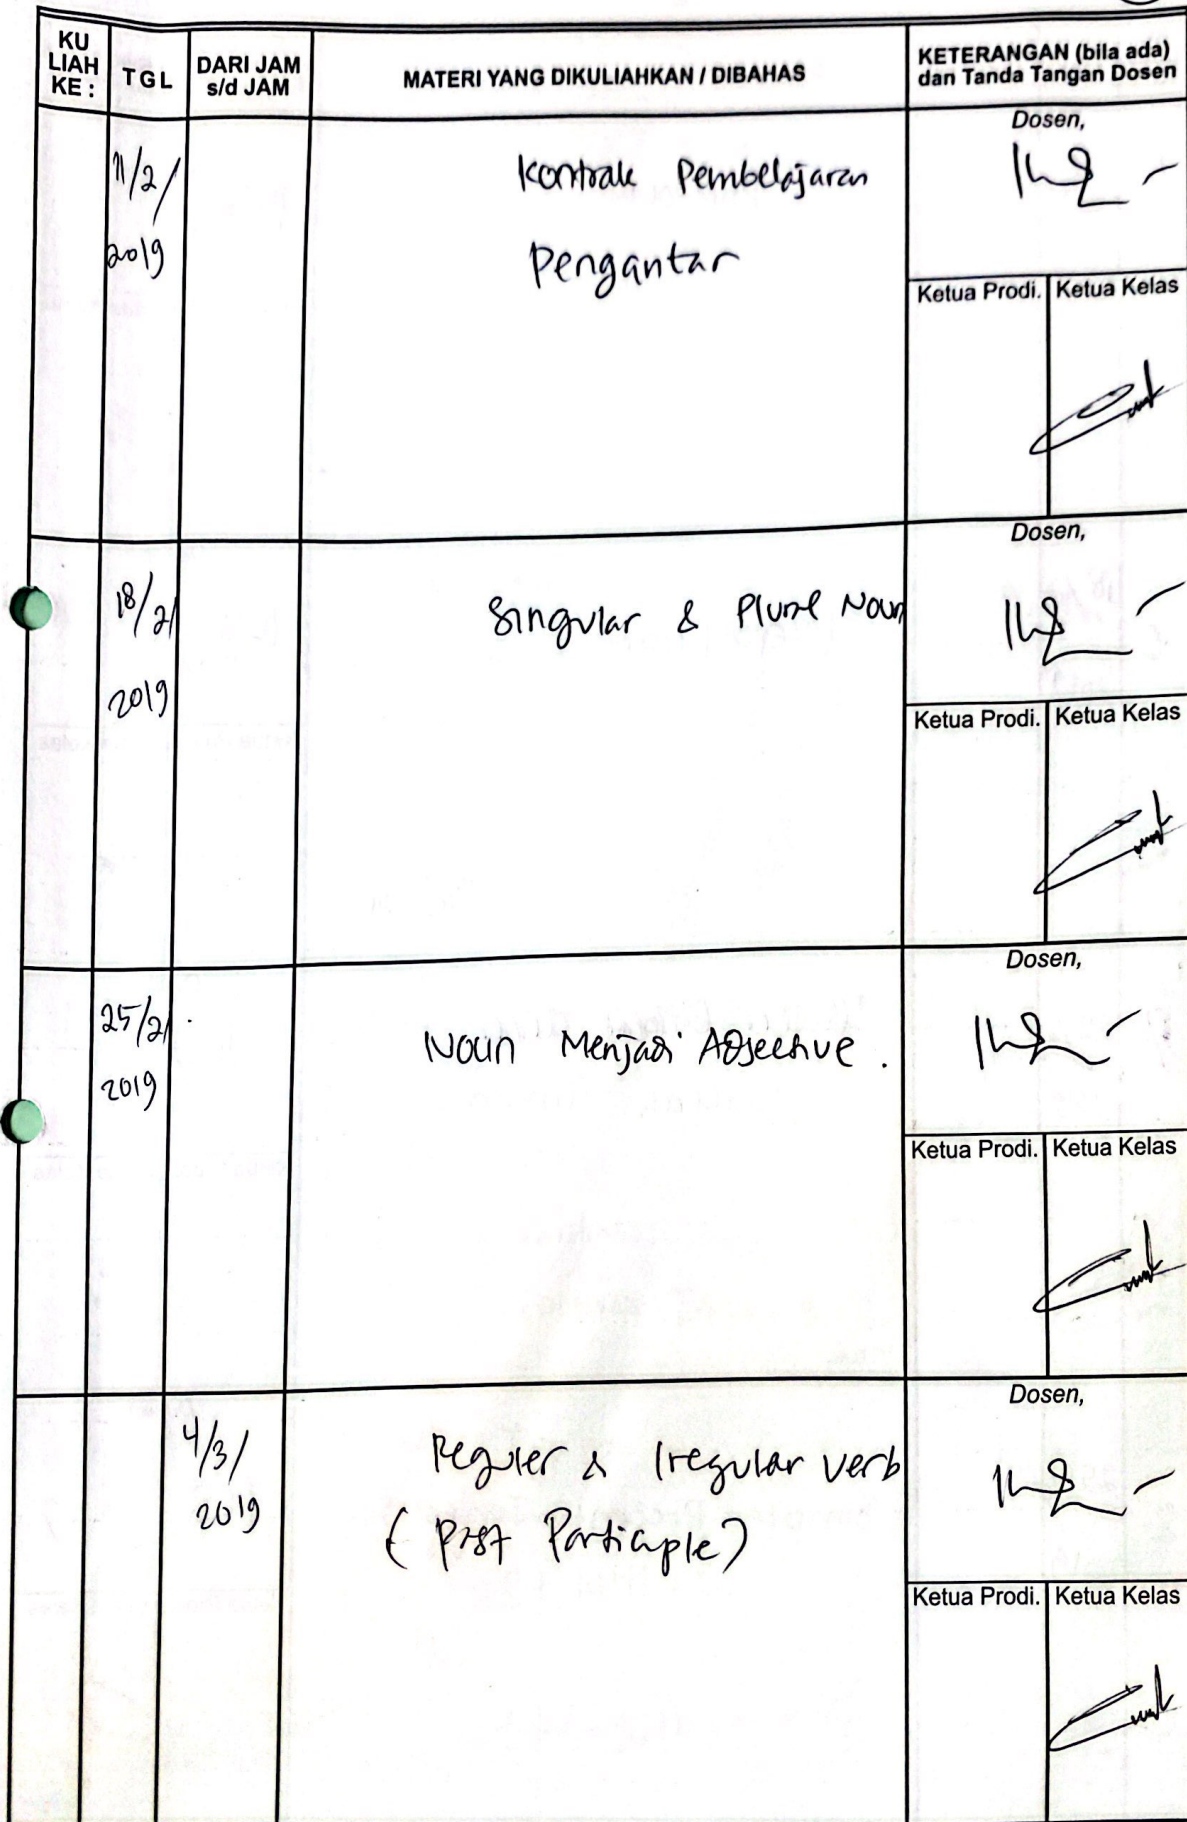 KU LIAH KE : TGL DARI JAM s/d JAM MATERI YANG DIKULIAHKAN / DIBAHAS KETERANGAN (bila ada) dan Tanda Tangan Dosen
Dosen,
11/2/ Kontrak Pembelajaran
2019 Pengantar
Ketua Prodi. Ketua Kelas
Dosen,
18/2/ Singular & Plural Noun
2019
Ketua Prodi. Ketua Kelas
Dosen,
25/2/ Noun Menjadi Adjective .
2019
Ketua Prodi. Ketua Kelas
Dosen,
4/3/ Reguler & Iregular Verb
2019 ( Past Participle )
Ketua Prodi. Ketua Kelas